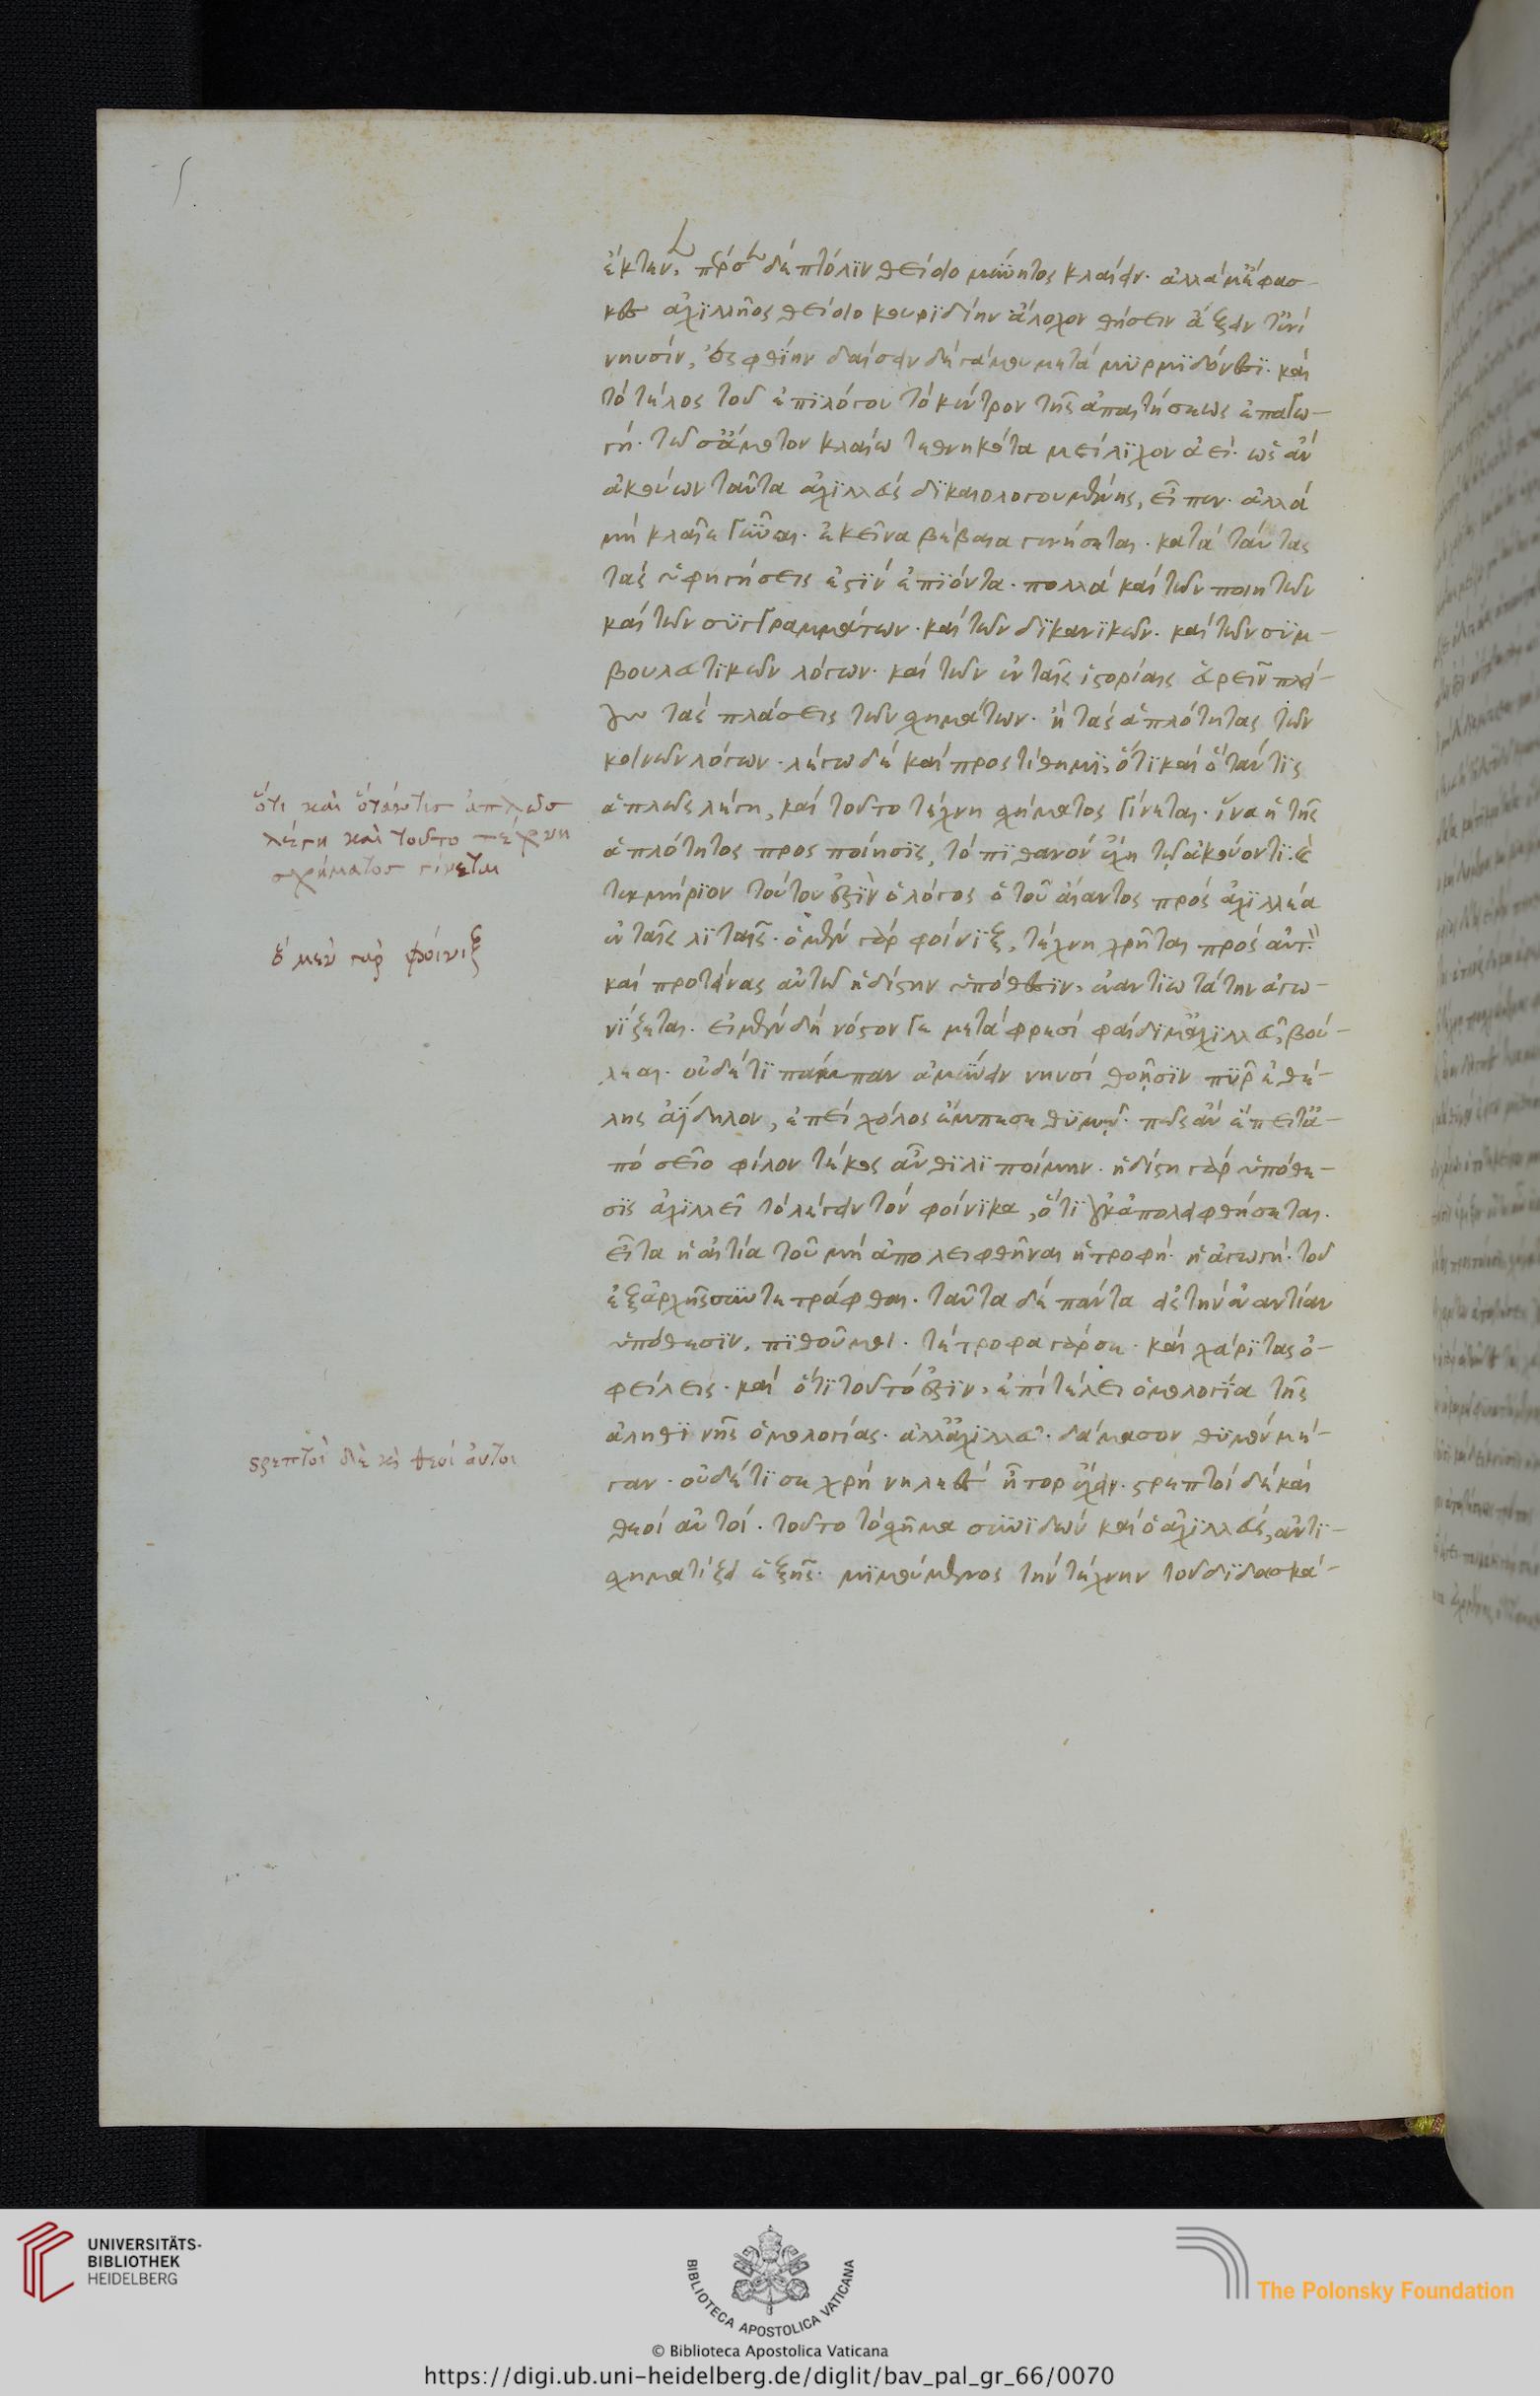 ἔκτεν, πέρσεν δὲ πτόλϊν θείοιο μύνητος κλαίειν· ἀλλά μ' ἔφασ-
κες ἀχϊλλῆος θείοιο κουρϊδίην ἄλοχον θήσειν ἄξειν τ' ἐνί
νηυσίν, ἐς φθίην δαίσειν δὲ γάμον μετὰ μϋρμϊδόνεσϊ· καὶ
τὸ τέλος τοῦ ἐπϊλόγου τὸ κέντρον τῆς ἀπαιτήσεως ἐπαγω-
γή· τῶ σ' ἄμοτον κλαίω τεθνηκότα μείλϊχον ἀεί· ὡς ἂν
ἀκούων ταῦτα ἀχϊλλεὺς δϊκαιολογουμένης, εἶπεν· ἀλλὰ
μὴ κλαῖε γύναι· ἐκεῖνα βέβαια γενήσεται· κατὰ ταύτας
τὰς ὑφηγήσεις ἐστϊν ἐπϊόντα· πολλὰ καὶ τῶν ποιητῶν
καὶ τῶν συγγραμμάτων· καὶ τῶν δϊκανϊκῶν· καὶ τῶν σϋμ-
βουλευτϊκῶν λόγων· καὶ τῶν ἐν ταῖς ἱστορίαις εὑρεῖν πλεί-
τὰς πλάσεις τῶν σχημάτων· ἢ τὰς ἁπλότητας τῶν
κοινῶν λόγων· λέγω δὲ καὶ προστίθημϊ, ὅτϊ καὶ ὅταν τϊς
ἁπλῶς λέγη, καὶ τοῦτο τέχνη σχήματος γίνεται· ἵνα ἡ τῆς
ἁπλότητος προσποίησϊς, τὸ πϊθανὸν ἔχη τῷ ἀκούοντϊ· καὶ
τεκμήρϊον τούτου ἐστϊν ὁ λόγος ὁ τοῦ αἴαντος πρὸς ἀχϊλλέα
ἐν ταῖς λϊταῖς· ὁ μὲν γὰρ φοίνϊξ, τέχνη χρῆται πρὸς αὐτὸν
καὶ προτείνας αὐτῶ ἡδίστην ὑπόθεσϊν, ἐναντϊωτάτην ἀγω-
νΐζεται· εἰ μὲν δὴ νόστον γε μετὰ φρεσὶ φαίδϊμ' ἀχϊλλεῦ, βού-
λεαι· οὐδέ τϊ πάμπαν ἀμύνειν νηυσὶ θοῇσϊν πῦρ ἐθέ-
λης ἀΐδηλον, ἐπεὶ χόλος ἔμπεσε θϋμῷ· πῶς ἂν ἔπειτ' ἀ-
πὸ σεῖο φίλον τέκος αὖθϊ λϊποίμην· ἡδίστη γὰρ ὑπόθε-
σϊς ἀχϊλλεῖ τὸ λέγειν τὸν φοίνϊκα, ὅτϊ οὐκ ἀπολειφθήσεται·
εἶτα ἡ αἰτία τοῦ μὴ ἀπολειφθῆναι ἡ τροφή· ἡ ἀγωγή· τοῦ
ἐξ ἀρχῆς συντετράφθαι· ταῦτα δὲ πάντα εἰς τὴν ἐναντίαν
ὑπόθεσϊν, πϊθοῦ μοι· τέτροφα γάρ σε· καὶ χάρϊτας ὀ-
φείλεις· καὶ ὅτϊ τοῦτό ἐστϊν, ἐπὶ τέλει ὁμολογία τῆς
ἀληθϊνῆς ὁμολογίας· ἀλλ' ἀχϊλλεῦ· δάμασον θϋμὸν μέ-
γαν· οὐδέ τϊ σε χρὴ νηλεὲς ἦτορ ἔχειν· στρεπτοὶ δὲ καὶ
θεοὶ αὐτοί· τοῦτο τὸ σχῆμα σϋνϊδὼν καὶ ὁ ἀχϊλλεὺς, ἀντϊ-
σχηματίζει ἑξῆς· μϊμούμενος τὴν τέχνην τοῦ δϊδασκά-
ὅτι καὶ ὅταν τισ ἁπλῶσ
λέγη καὶ τοῦτο τέχνη
σχήματοσ γίνεται
ὁ μὲν γὰρ φοίνιξ
στρεπτοὶ δὲ καὶ θεοὶ αὐτοι
UNIVERSITÄTS-
BIBLIOTHEK
HEIDELBERG
BIBLIOTECA APOSTOLICA VATICANA
The Polonsky Foundation
© Biblioteca Apostolica Vaticana
https://digi.ub.uni-heidelberg.de/diglit/bav_pal_gr_66/0070